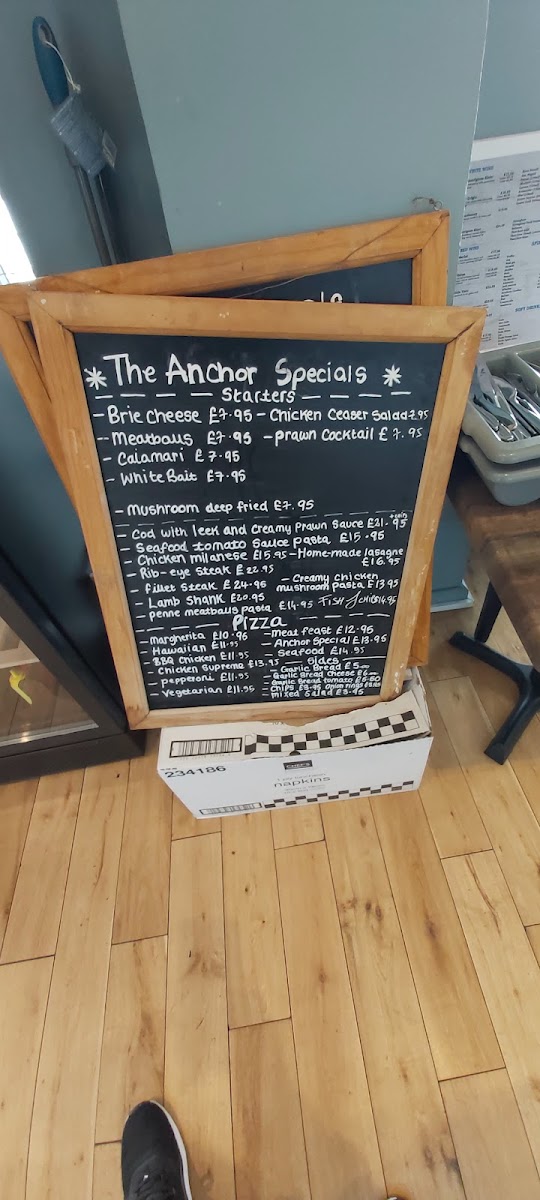 * The Anchor Specials *
Starters
- Brie cheese £7.95 - Chicken Ceaser Salad 7.95
- Meatballs £7.95 - prawn Cocktail £7.95
- Calamari £7.95
- White Bait £7.95
- mushroom deep fried £7.95
- Cod with leek and Creamy Prawn Sauce £21.95
- Seafood tomato Sauce pasta £15.95
- Chicken milanese £15.95 - Home-made lasagne £16.95
- Rib-eye Steak £22.95
- fillet Steak £24.95 - Creamy chicken mushroom pasta £13.95
- Lamb Shank £20.95
penne meatballs pasta £14.95 FISH / CHIPS 14.95
Pizza
- margherita £10.95 - Meat feast £12.95
- Hawaiian £11.95 - Anchor Special £13.95
- BBQ Chicken £11.95 - Seafood £14.95
- Chicken Suprema £13.95 - Sides
- pepperoni £11.95 - Garlic Bread £5
- Garlic Bread Cheese £6
- Garlic Bread tomato £6.50
- Vegetarian £11.95 - Chips £3.95 Onion rings
- mixed Salad £3.95
234186
CHEF'S
napkins